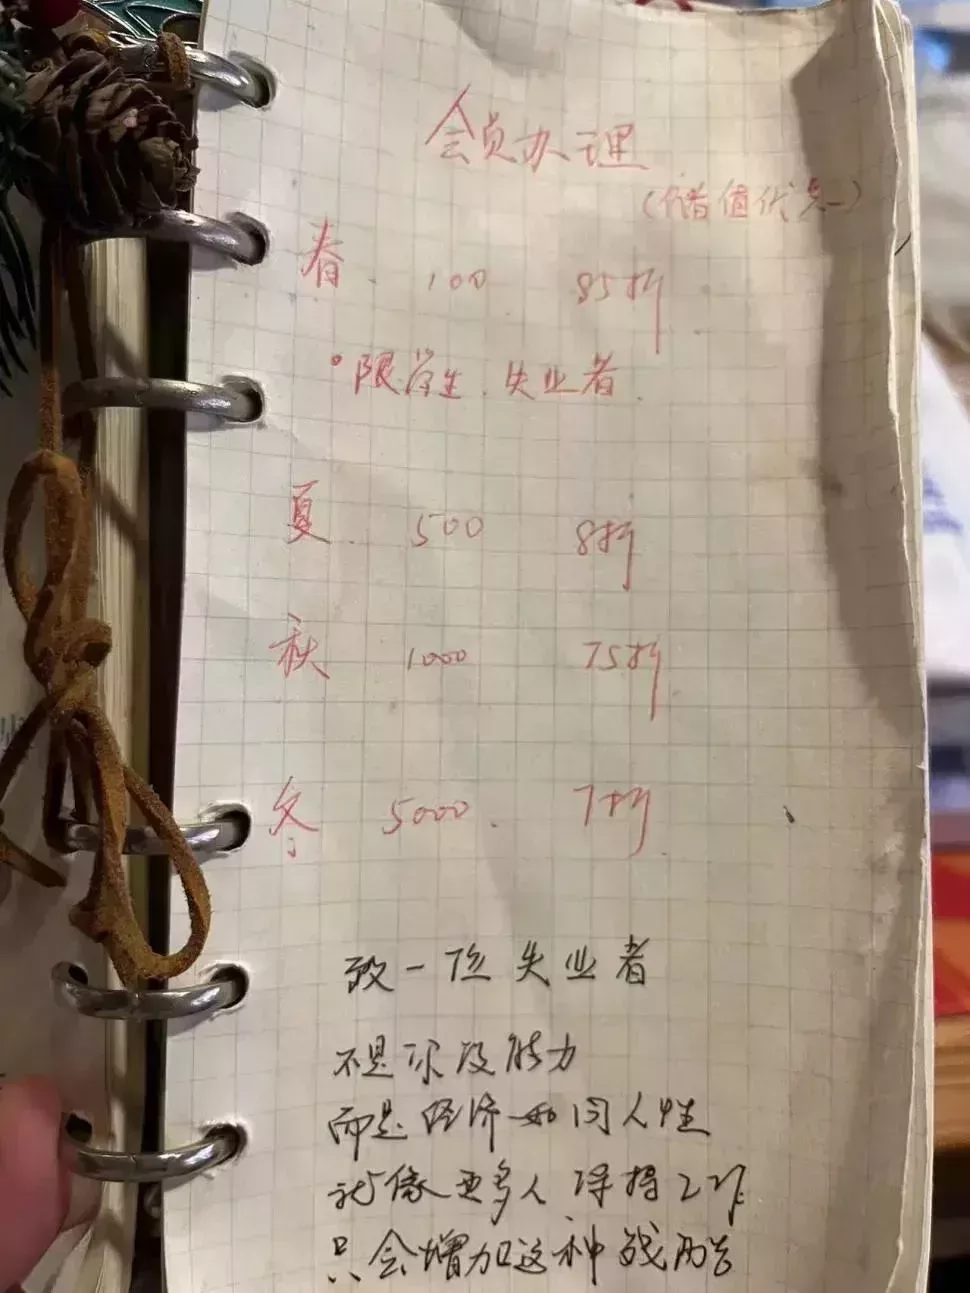 会员办理
(储值优惠)
春. 100 85折
·限学生、失业者.
夏. 500 8折
秋 1000 75折
冬 5000. 7折
致一位失业者
不是你没能力
而是经济如同人性
就像更多人 得 工作
只会增加这种残酷